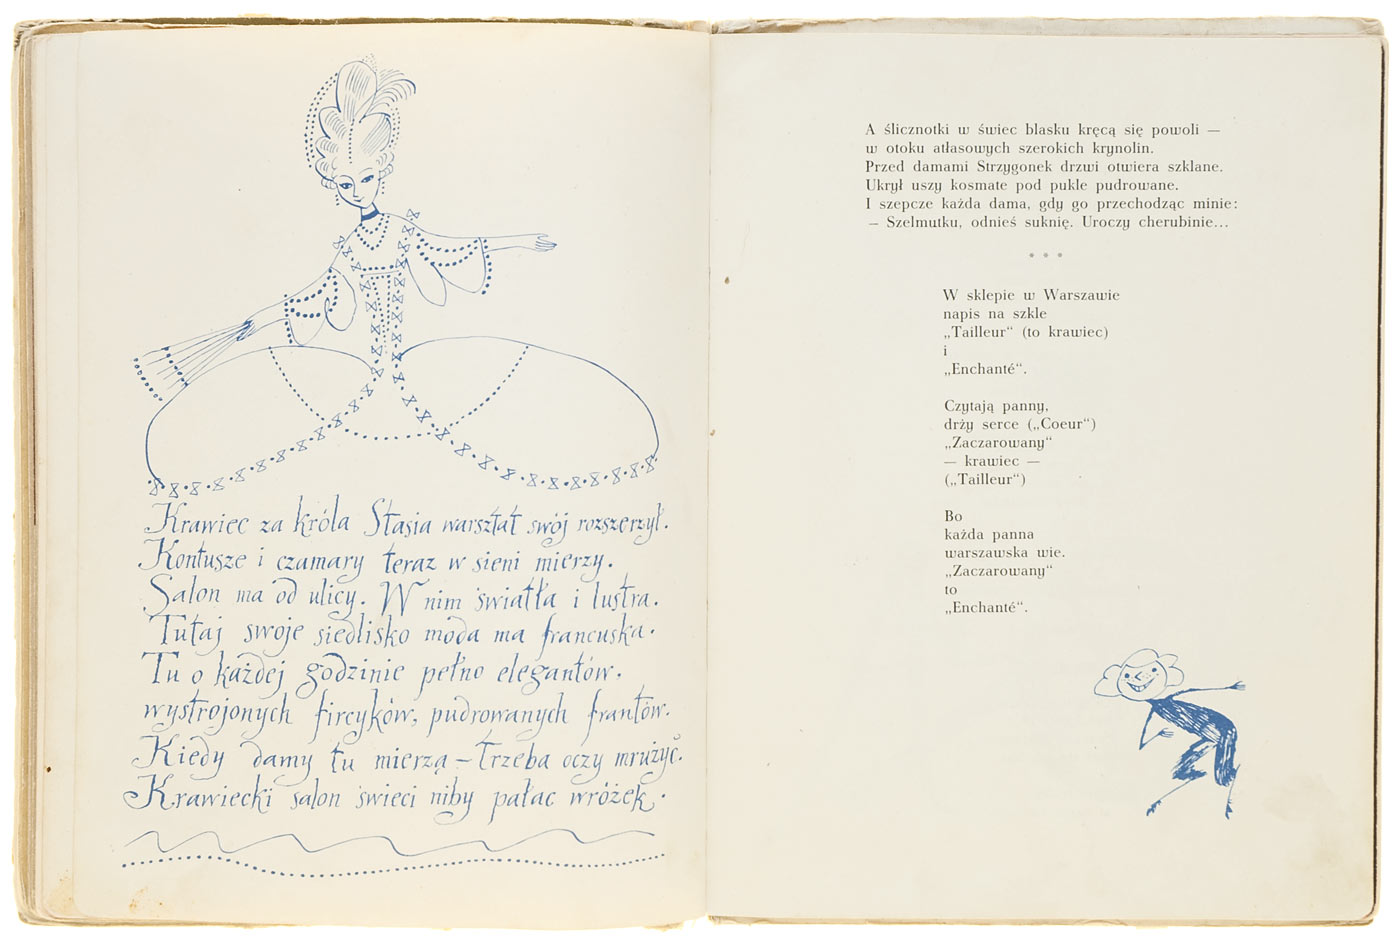 Krawiec za króla Stasia warsztat swój rozszerzył.
Kontusze i czamary teraz w sieni mierzy.
Salon ma od ulicy. W nim światła i lustra.
Tutaj swoje siedlisko moda ma francuska.
Tu o każdej godzinie pełno elegantów,
wystrojonych fircyków, pudrowanych frantów.
Kiedy damy tu mierzą – trzeba oczy mrużyć.
Krawiecki salon świeci niby pałac wróżek.
A ślicznotki w świec blasku kręcą się powoli —
w otoku atłasowych szerokich krynolin.
Przed damami Strzygonek drzwi otwiera szklane.
Ukrył uszy kosmate pod pukle pudrowane.
I szepcze każda dama, gdy go przechodząc minie:
— Szelmutku, odnieś suknię. Uroczy cherubinie...
* * *
W sklepie w Warszawie
napis na szkle
„Tailleur“ (to krawiec)
i
„Enchanté“.
Czytają panny,
drży serce („Coeur“)
„Zaczarowany“
— krawiec —
(„Tailleur“)
Bo
każda panna
warszawska wie.
„Zaczarowany“
to
„Enchanté“.